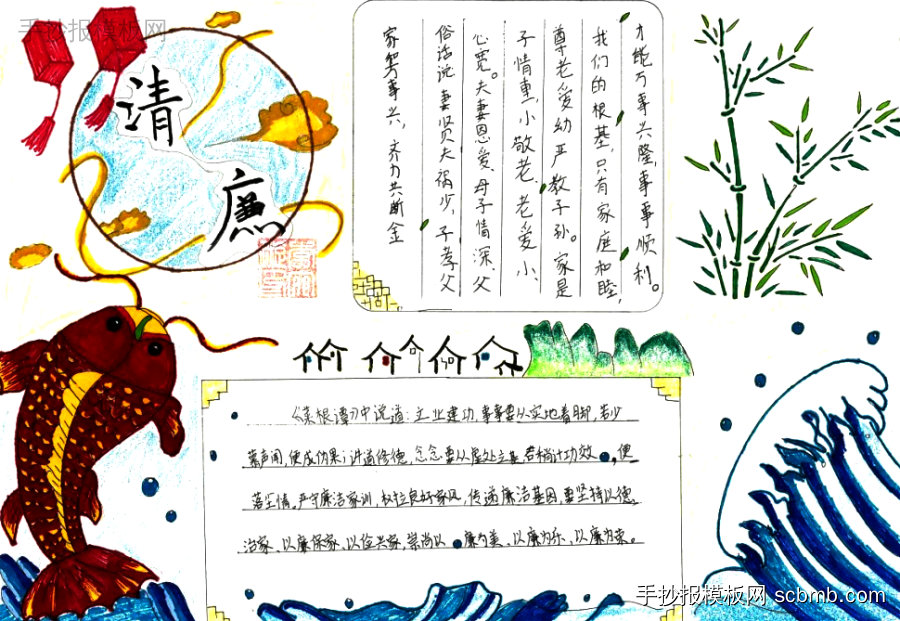 手抄报模板网
清
廉
家和万事兴，齐力共断金
俗话说妻贤夫祸少，子孝父
心宽。夫妻恩爱、母子情深、父
子情重，小敬老、老爱小、
尊老爱幼严教子孙。家是
我们的根基，只有家庭和睦，
才能万事兴隆，事事顺利。
《菜根谭》中说道：立业建功，事事要从实地着脚，若少
慕声闻，便成伪果；讲道修德，念念要从虚处立基，若稍计功效，便
落尘情。严守廉洁家训，树立良好家风，传递廉洁基因，要坚持以德
治家、以廉保家、以俭兴家，崇尚以廉为美、以廉为乐、以廉为荣。
手抄报模板网 scbmb.com